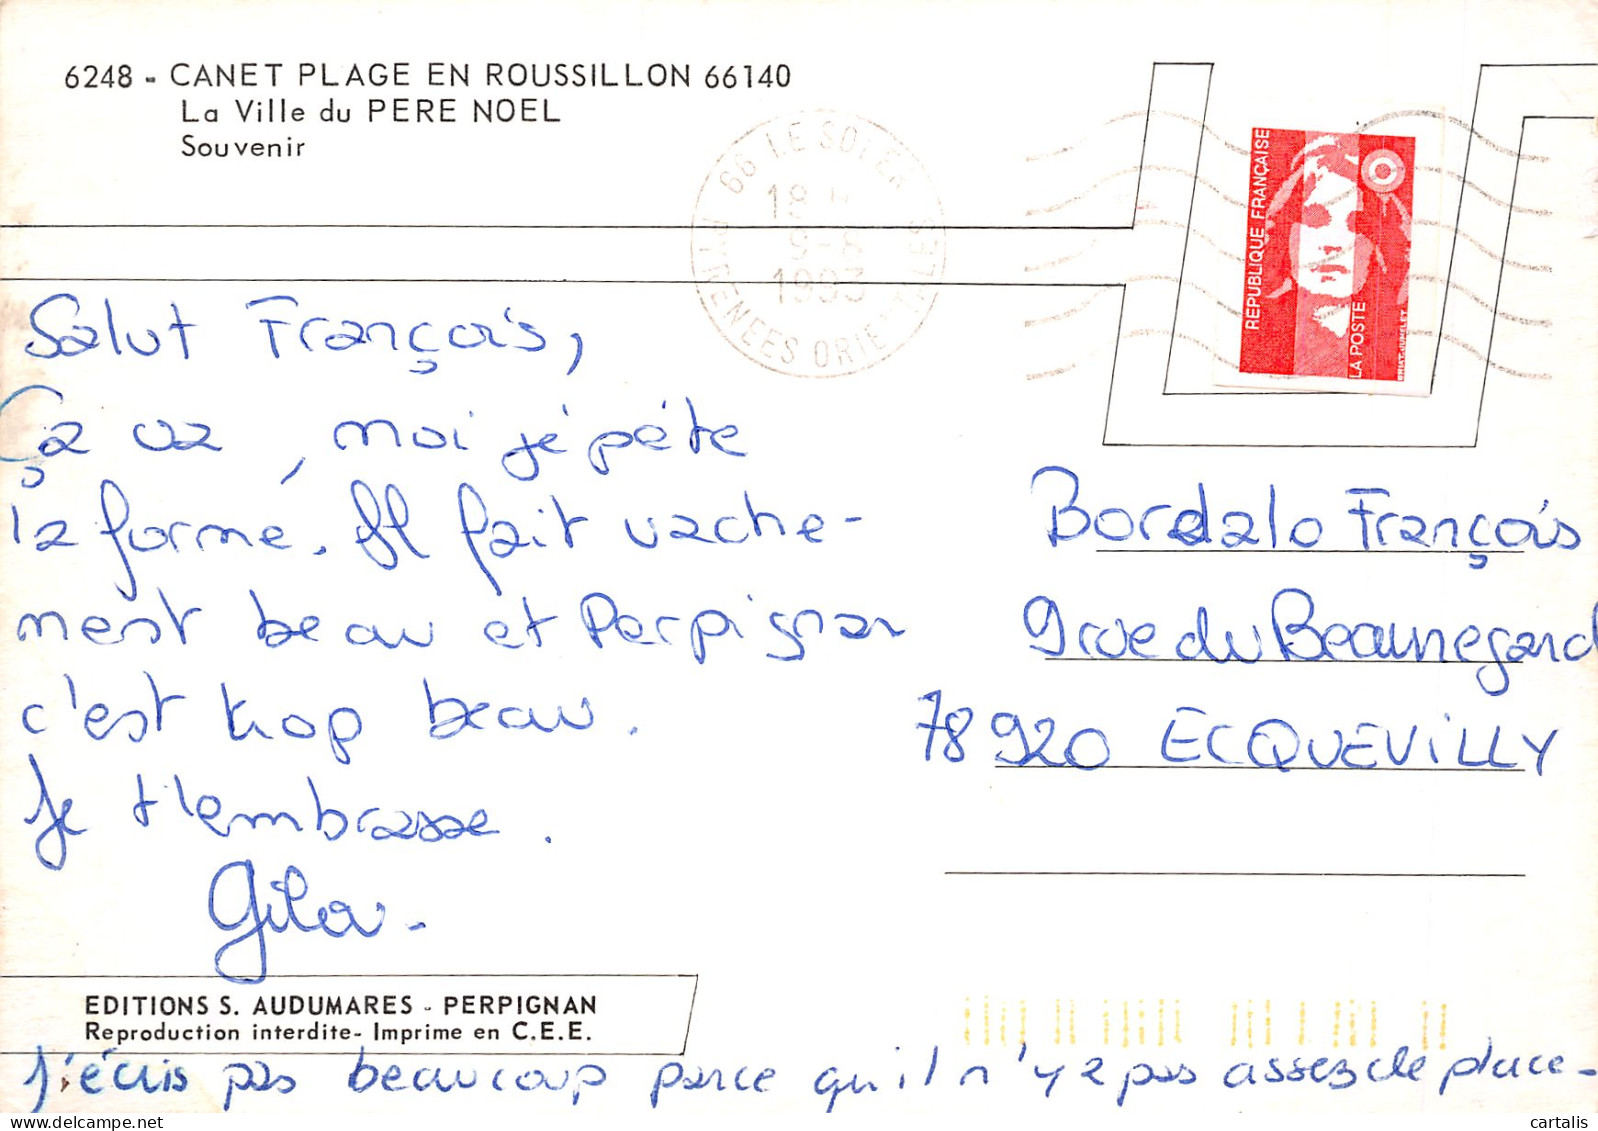 6248 - CANET PLAGE EN ROUSSILLON 66140
La Ville du PERE NOEL
Souvenir
66 LE SOLER
18 H
9-8
1993
PYRENEES ORIENTALES
REPUBLIQUE FRANÇAISE
LA POSTE
BRIAT-JUMELET
Salut François,
Ça va, moi je pète
la forme. Il fait vache-
ment beau et Perpignan
c'est trop beau.
Je t'embrasse.
Bordalo François
9 rue du Beauregard
78920 ECQUEVILLY
EDITIONS S. AUDUMARES - PERPIGNAN
Reproduction interdite- Imprime en C.E.E.
J'écris pas beaucoup parce qu'il n'y a pas assez de place-
cartalis